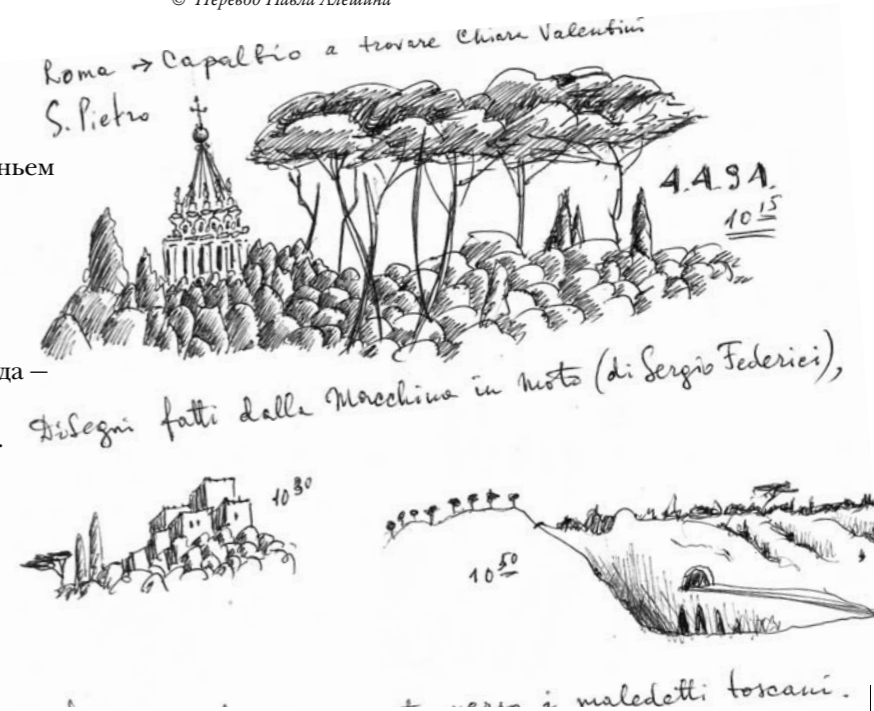 © Перевод Павла Алешина
Roma → Capalbio a trovare Chiara Valentini
S. Pietro
ньем
4.4.91.
10 15
да —
Disegni fatti dalla Macchina in moto (di Sergio Federici),
10 30
10 50
verso i maledetti toscani.